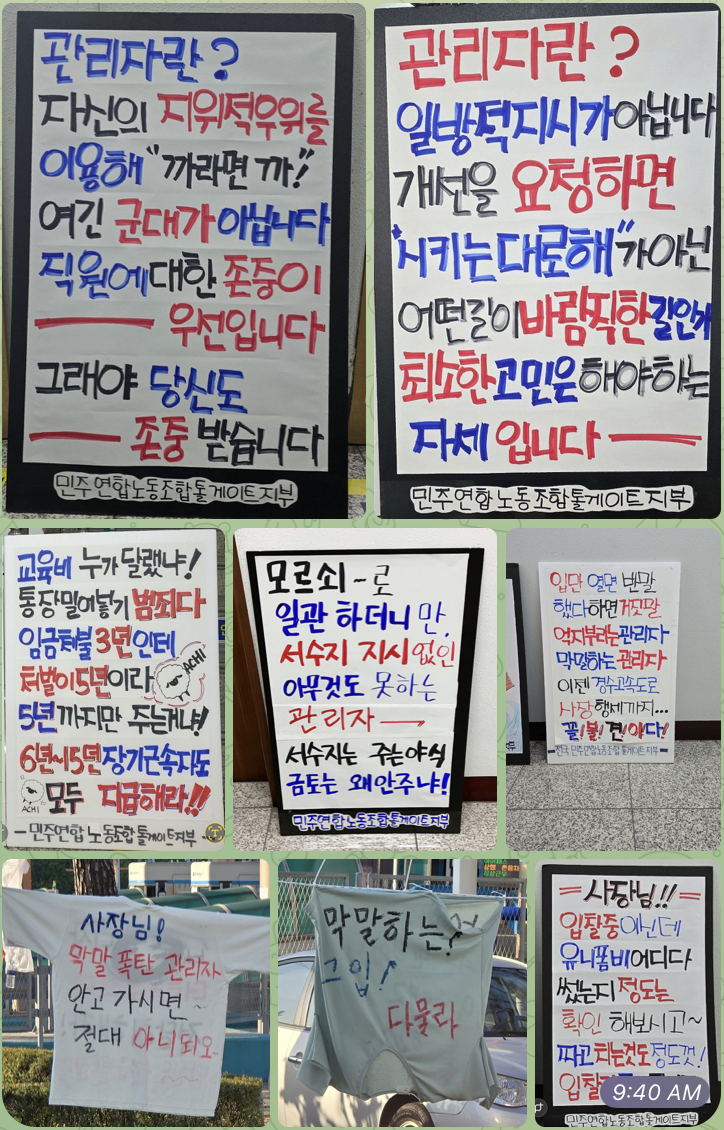 관리자란?
자신의 지위적우위를
이용해 "까라면 까!"
여긴 군대가 아닙니다
직원에대한 존중이
우선입니다
그래야 당신도
존중 받습니다
민주연합노동조합톨게이트지부
관리자란?
일방적지시가아닙니다
개선을 요청하면
"시키는대로해"가아닌
어떤길이바람직한길인가
최소한고민은해야하는
자세 입니다
민주연합노동조합톨게이트지부
교육비 누가달랬냐!
통장밀어넣기 범죄다
임금체불3년인데
처벌이5년이라
ACHI
5년까지만 주는거냐!
6년서5년장기근속지도
ACHI
모두 지급해라!!!
민주연합노동조합톨게이트지부
모르쇠~로
일관 하더니만,
서수지 지시없인
아무것도 못하는
관리자
서수지는 주는야식
금토는 왜안주냐!
민주연합노동조합톨게이트지부
입만 열면 반말
했다하면거짓말
억지부리는관리자
막말하는관리자
이젠 경수고속도로
사장행세까지...
꼴!불!견!이다!
전국민주연합노동조합톨게이트지부
사장님!
막말폭탄 관리자
안고가시면~
절대 아니되오~
막말하는?~
그입!
다물라
사장님!!
입찰중이신데
유니폼비어디다
썼는지 정도는
확인 해보시고~
짜고치는것도정도껏!
입찰
9:40 AM
민주연합노동조합톨게이트지부